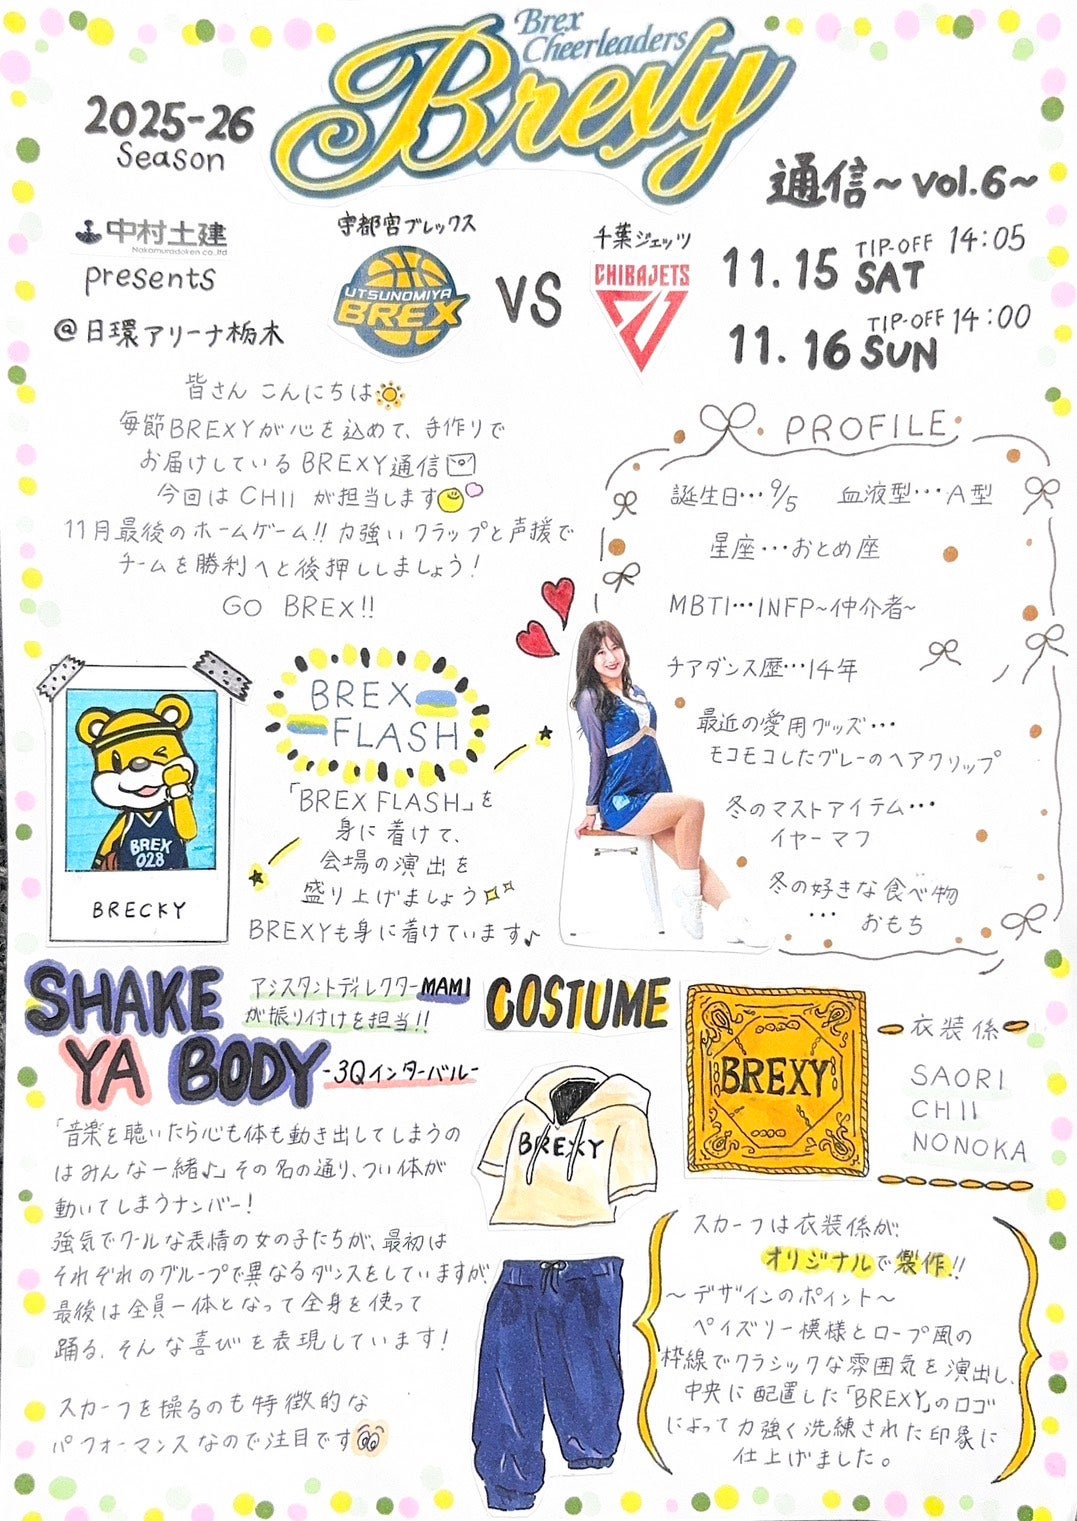 Brex
Cheerleaders
Brexy
2025-26
Season
通信～vol.6～
中村土建
Nakamuradoken co.,ltd
presents
@日環アリーナ栃木
宇都宮ブレックス
UTSUNOMIYA
BREX
VS
千葉ジェッツ
CHIBAJETS
11.15 SAT TIP-OFF 14:05
11.16 SUN TIP-OFF 14:00
皆さん こんにちは
毎節BREXYが心を込めて、手作りで
お届けしているBREXY通信
今回は CHII が担当します
11月最後のホームゲーム!! 力強いクラップと声援で
チームを勝利へと後押ししましょう!
GO BREX!!
PROFILE
誕生日…9/5 血液型…A型
星座…おとめ座
MBTI…INFP～仲介者～
チアダンス歴…14年
最近の愛用グッズ…
モコモコしたグレーのヘアクリップ
冬のマストアイテム…
イヤーマフ
冬の好きな食べ物
… おもち
BREX
028
BRECKY
BREX
FLASH
「BREX FLASH」を
身に着けて、
会場の演出を
盛り上げましょう
BREXYも身に着けています♪
SHAKE
YA BODY
-3Qインターバル-
アシスタントディレクターMAMI
が振り付けを担当!!
「音楽を聴いたら心も体も動き出してしまうの
はみんな一緒♪」その名の通り、つい体が
動いてしまうナンバー!
強気でクールな表情の女の子たちが、最初は
それぞれのグループで異なるダンスをしていますが
最後は全員一体となって全身を使って
踊る、そんな喜びを表現しています!
スカーフを操るのも特徴的な
パフォーマンスなので注目です
COSTUME
BREXY
BREXY
衣装係
SAORI
CHII
NONOKA
スカーフは衣装係が
オリジナルで製作!!
～デザインのポイント～
ペイズリー模様とロープ風の
枠線でクラシックな雰囲気を演出し、
中央に配置した「BREXY」のロゴ
によって力強く洗練された印象に
仕上げました。